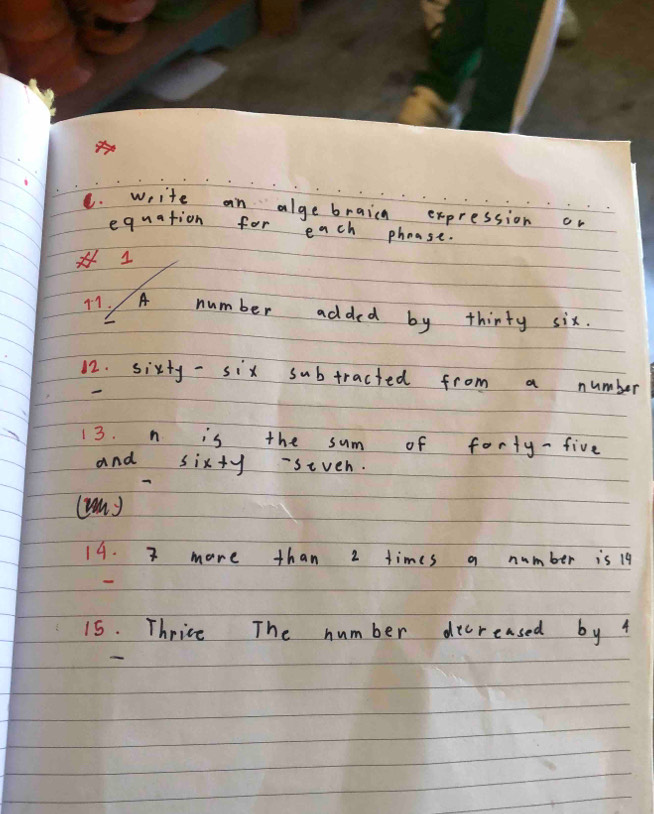 C. Write an algebraica expression or
equation for each phrase.
# 1
11. A number added by thirty six.
12. sixty-six subtracted from a number
13. n is the sum of forty-five
and sixty-seven.
14. 7 more than 2 times a number is 19
15. Thrice The number decreased by 4